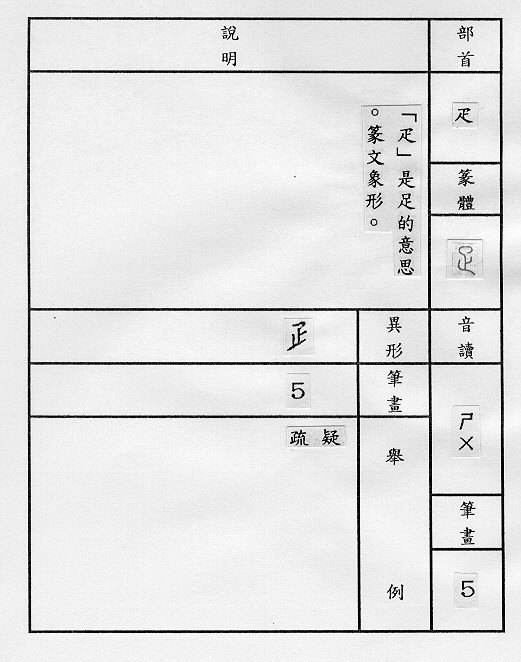 部首
疋
篆體
音讀
ㄕㄨ
筆畫
5
說明
「疋」是足的意思
。篆文象形。
異形
𤴔
筆畫
5
舉例
疑 疏